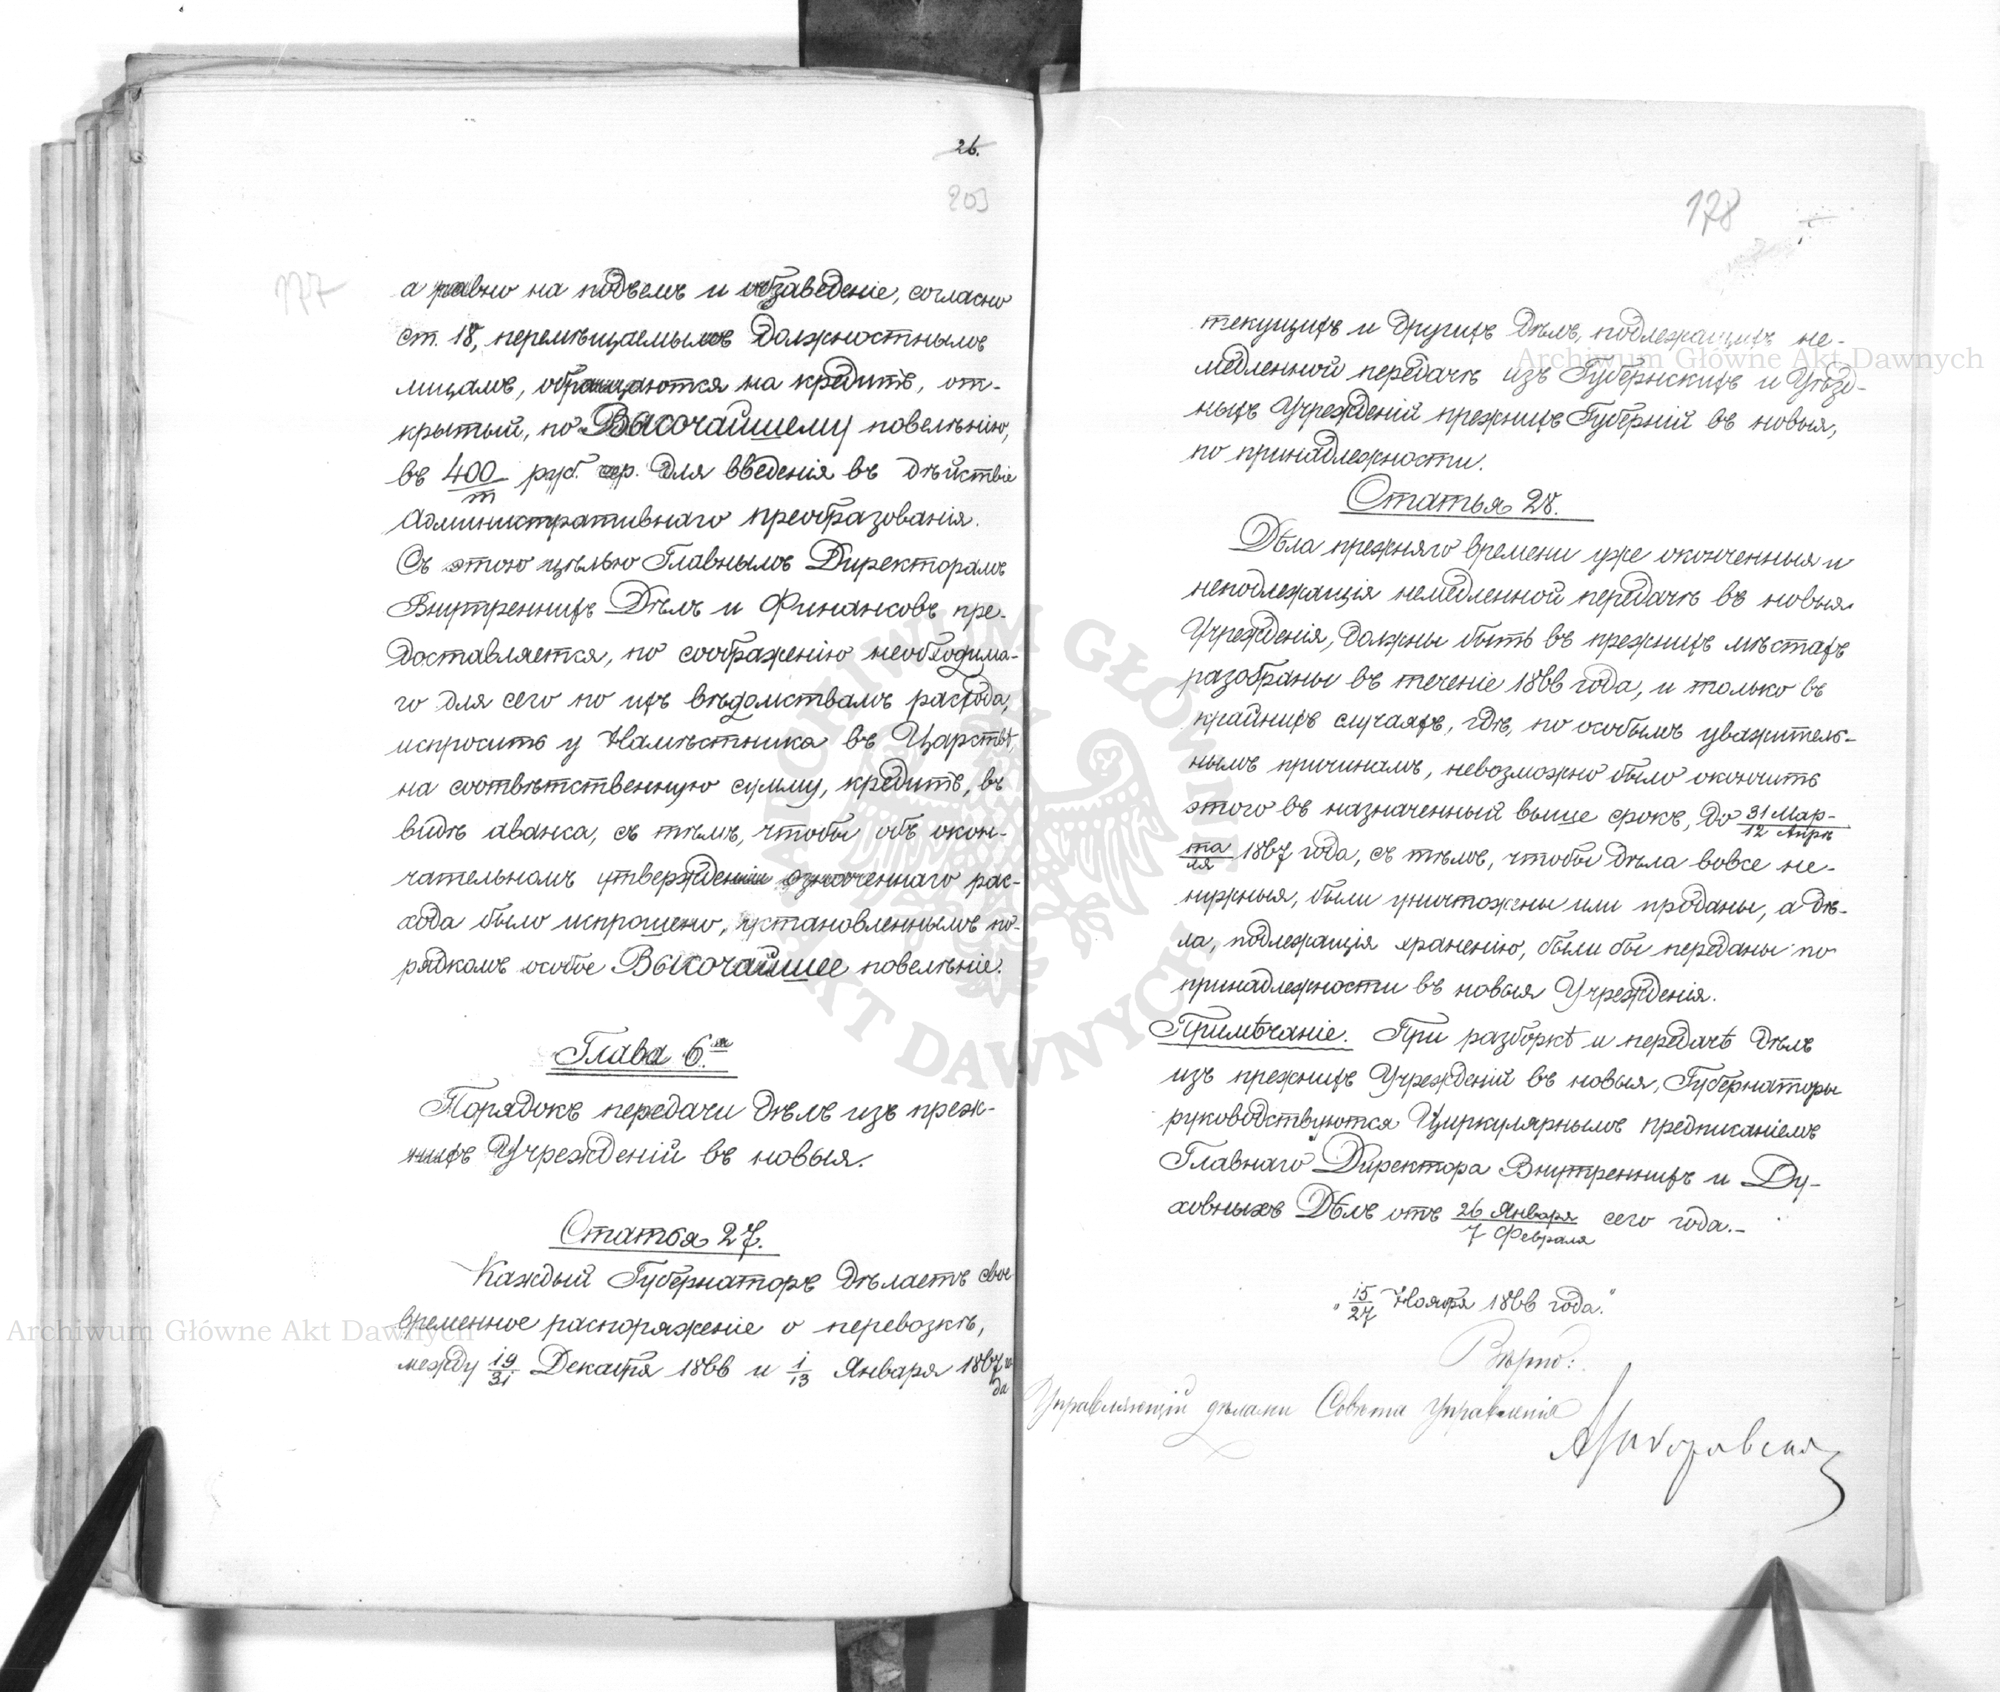 26.
203
177
а равно на подъемъ и обзаведеніе, согласно
ст. 18, перемѣщаемымъ должностнымъ
лицамъ, обращаются на кредитъ, от-
крытый, по Высочайшему повелѣнію,
въ 400/т руб. сер. для введенія въ дѣйствіе
Административнаго преобразованія.
Съ этою цѣлью Главнымъ Директорамъ
Внутреннихъ Дѣлъ и Финансовъ пре-
доставляется, по соображенію необходима-
го для сего по ихъ вѣдомствамъ расхода,
испросить у Намѣстника въ Царствѣ,
на соотвѣтственную сумму, кредитъ, въ
видѣ аванса, съ тѣмъ, чтобы объ окон-
чательномъ утвержденіи означеннаго рас-
хода было испрошено, установленнымъ по-
рядкомъ особое Высочайшее повелѣніе.
Глава 6ая
Порядокъ передачи дѣлъ изъ преж-
нихъ Учрежденій въ новыя.
Статья 27.
Каждый Губернаторъ дѣлаетъ свое-
временное распоряженіе о перевозкѣ,
между 19/31 Декабря 1866 и 1/13 Января 1867 го
да
178
текущихъ и другихъ дѣлъ, подлежащихъ не-
медленной передачѣ изъ Губернскихъ и Уѣзд-
ныхъ Учрежденій прежнихъ Губерній въ новыя,
по принадлежности.
Статья 28.
Дѣла прежняго времени уже оконченныя и
неподлежащія немедленной передачѣ въ новыя
Учрежденія, должны быть въ прежнихъ мѣстахъ
разобраны въ теченіе 1866 года, и только въ
крайнихъ случаяхъ, гдѣ, по особымъ уважитель-
нымъ причинамъ, невозможно было окончить
этого въ назначенный выше срокъ, до 31 Мар-/12 Апрѣ
та/ля 1867 года, съ тѣмъ, чтобы дѣла вовсе не-
нужныя, были уничтожены или проданы, а дѣ-
ла, подлежащія храненію, были бы переданы по
принадлежности въ новыя Учрежденія.
Примѣчаніе. При разборкѣ и передачѣ дѣлъ
изъ прежнихъ Учрежденій въ новыя, Губернаторы
руководствуются Циркулярнымъ предписаніемъ
Главнаго Директора Внутреннихъ и Ду-
ховныхъ Дѣлъ отъ 26 Января/7 Февраля сего года.-
"15/27 Ноября 1866 года."
Вѣрно:
Управляющій дѣлами Совѣта Управленія
Archiwum Główne Akt Dawnych
Archiwum Główne Akt Dawnych
ARCHIWUM GŁÓWNE AKT DAWNYCH